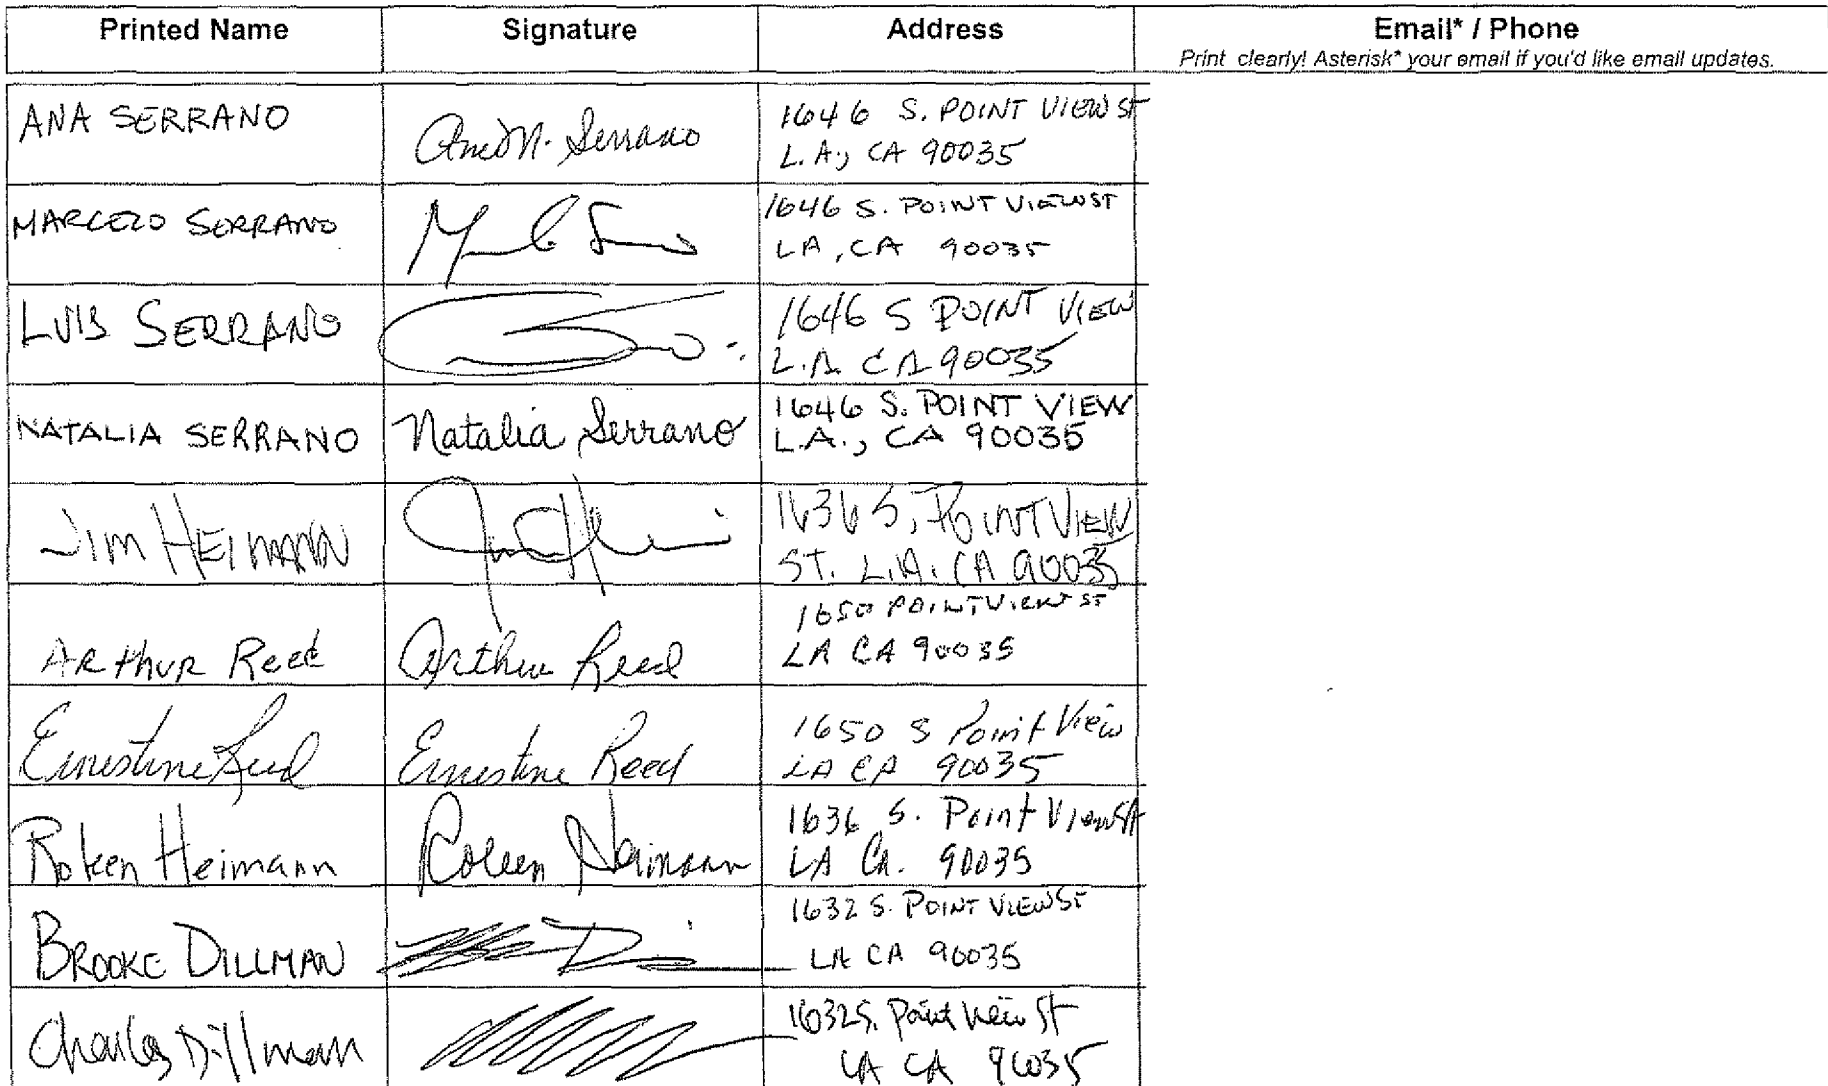 Printed Name
Signature
Address
Email* / Phone
Print clearly! Asterisk* your email if you'd like email updates.
ANA SERRANO
Ana M. Serrano
1646 S. POINT VIEW ST
L.A., CA 90035
MARCELO SERRANO
1646 S. POINT VIEW ST
LA, CA 90035
LUIS SERRANO
1646 S POINT VIEW
L.A. CA 90035
NATALIA SERRANO
Natalia Serrano
1646 S. POINT VIEW
L.A., CA 90035
JIM HEIMANN
1636 S. POINT VIEW
ST. L.A. CA 90035
ARthuR Reed
Arthur Reed
1650 POINT VIEW ST
LA CA 90035
Ernestine Reed
Ernestine Reed
1650 S Point View
LA CA 90035
Roleen Heimann
Roleen Heimann
1636 S. Point View St
LA Ca. 90035
BROOKE DILLMAN
1632 S. POINT VIEW ST
LA CA 90035
Charles Dillman
1632 S. Point View St
LA CA 90035